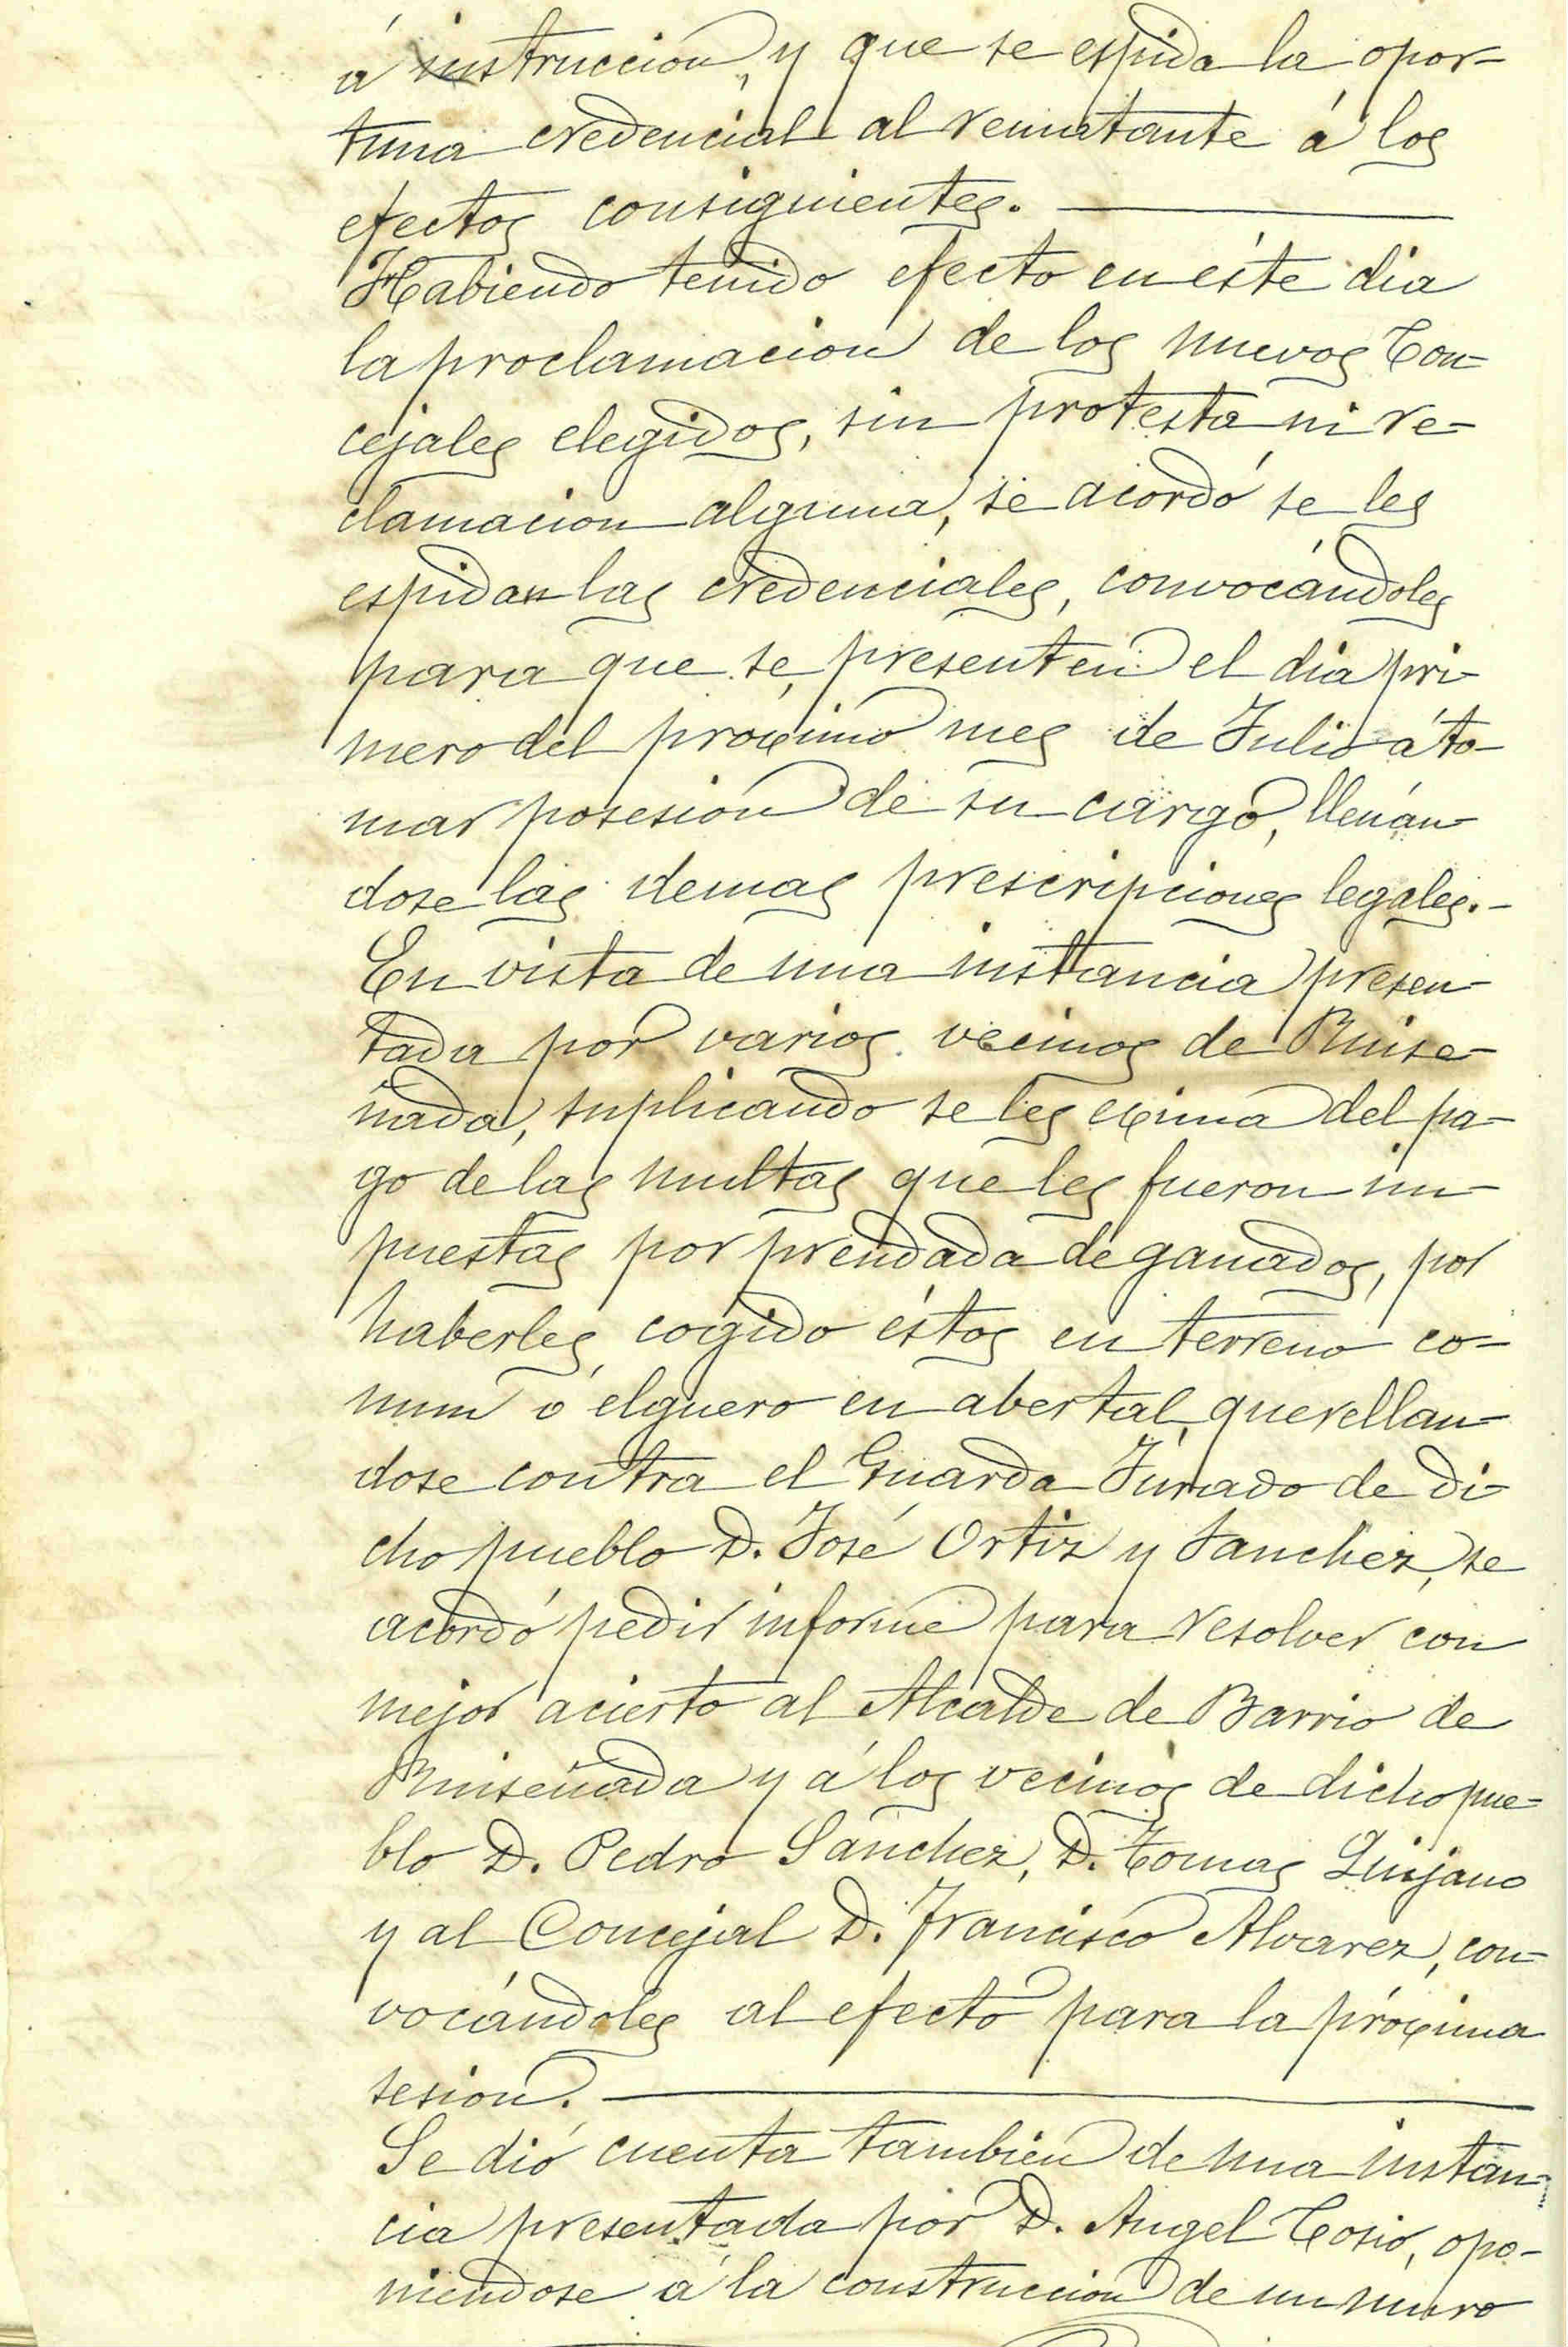 á instruccion, y que se espida la opor-
tuna credencial al rematante á los
efectos consiguientes.
Habiendo tenido efecto en éste dia
la proclamacion de los nuevos Con-
cejales elegidos, sin protesta ni re-
clamacion alguna, se acordó se les
espidan las credenciales, convocándoles
para que se presenten el dia pri-
mero del próximo mes de Julio á to-
mar posesión de su cargo, llenán-
dose las demas prescripciones legales.-
En vista de una instancia presen-
tada por varios vecinos de Ruise-
ñada, suplicando se les exima del pa-
go de las multas que les fueron im-
puestas por prendada de ganados, por
haberles cogido éstos en terreno co-
mun ó elguero en abertal, querellan-
dose contra el Guarda Jurado de di-
cho pueblo D. José Ortiz y Sanchez, se
acordó pedir informe para resolver con
mejor acierto al Alcalde de Barrio de
Ruiseñada y á los vecinos de dicho pue-
blo D. Pedro Sanchez, D. Tomas Quijano
y al Concejal D. Francisco Alvarez, con-
vocándoles al efecto para la próxima
sesion.
Se dió cuenta tambien de una instan-
cia presentada por D. Angel Cosio, opo-
niendose á la construccion de un muro